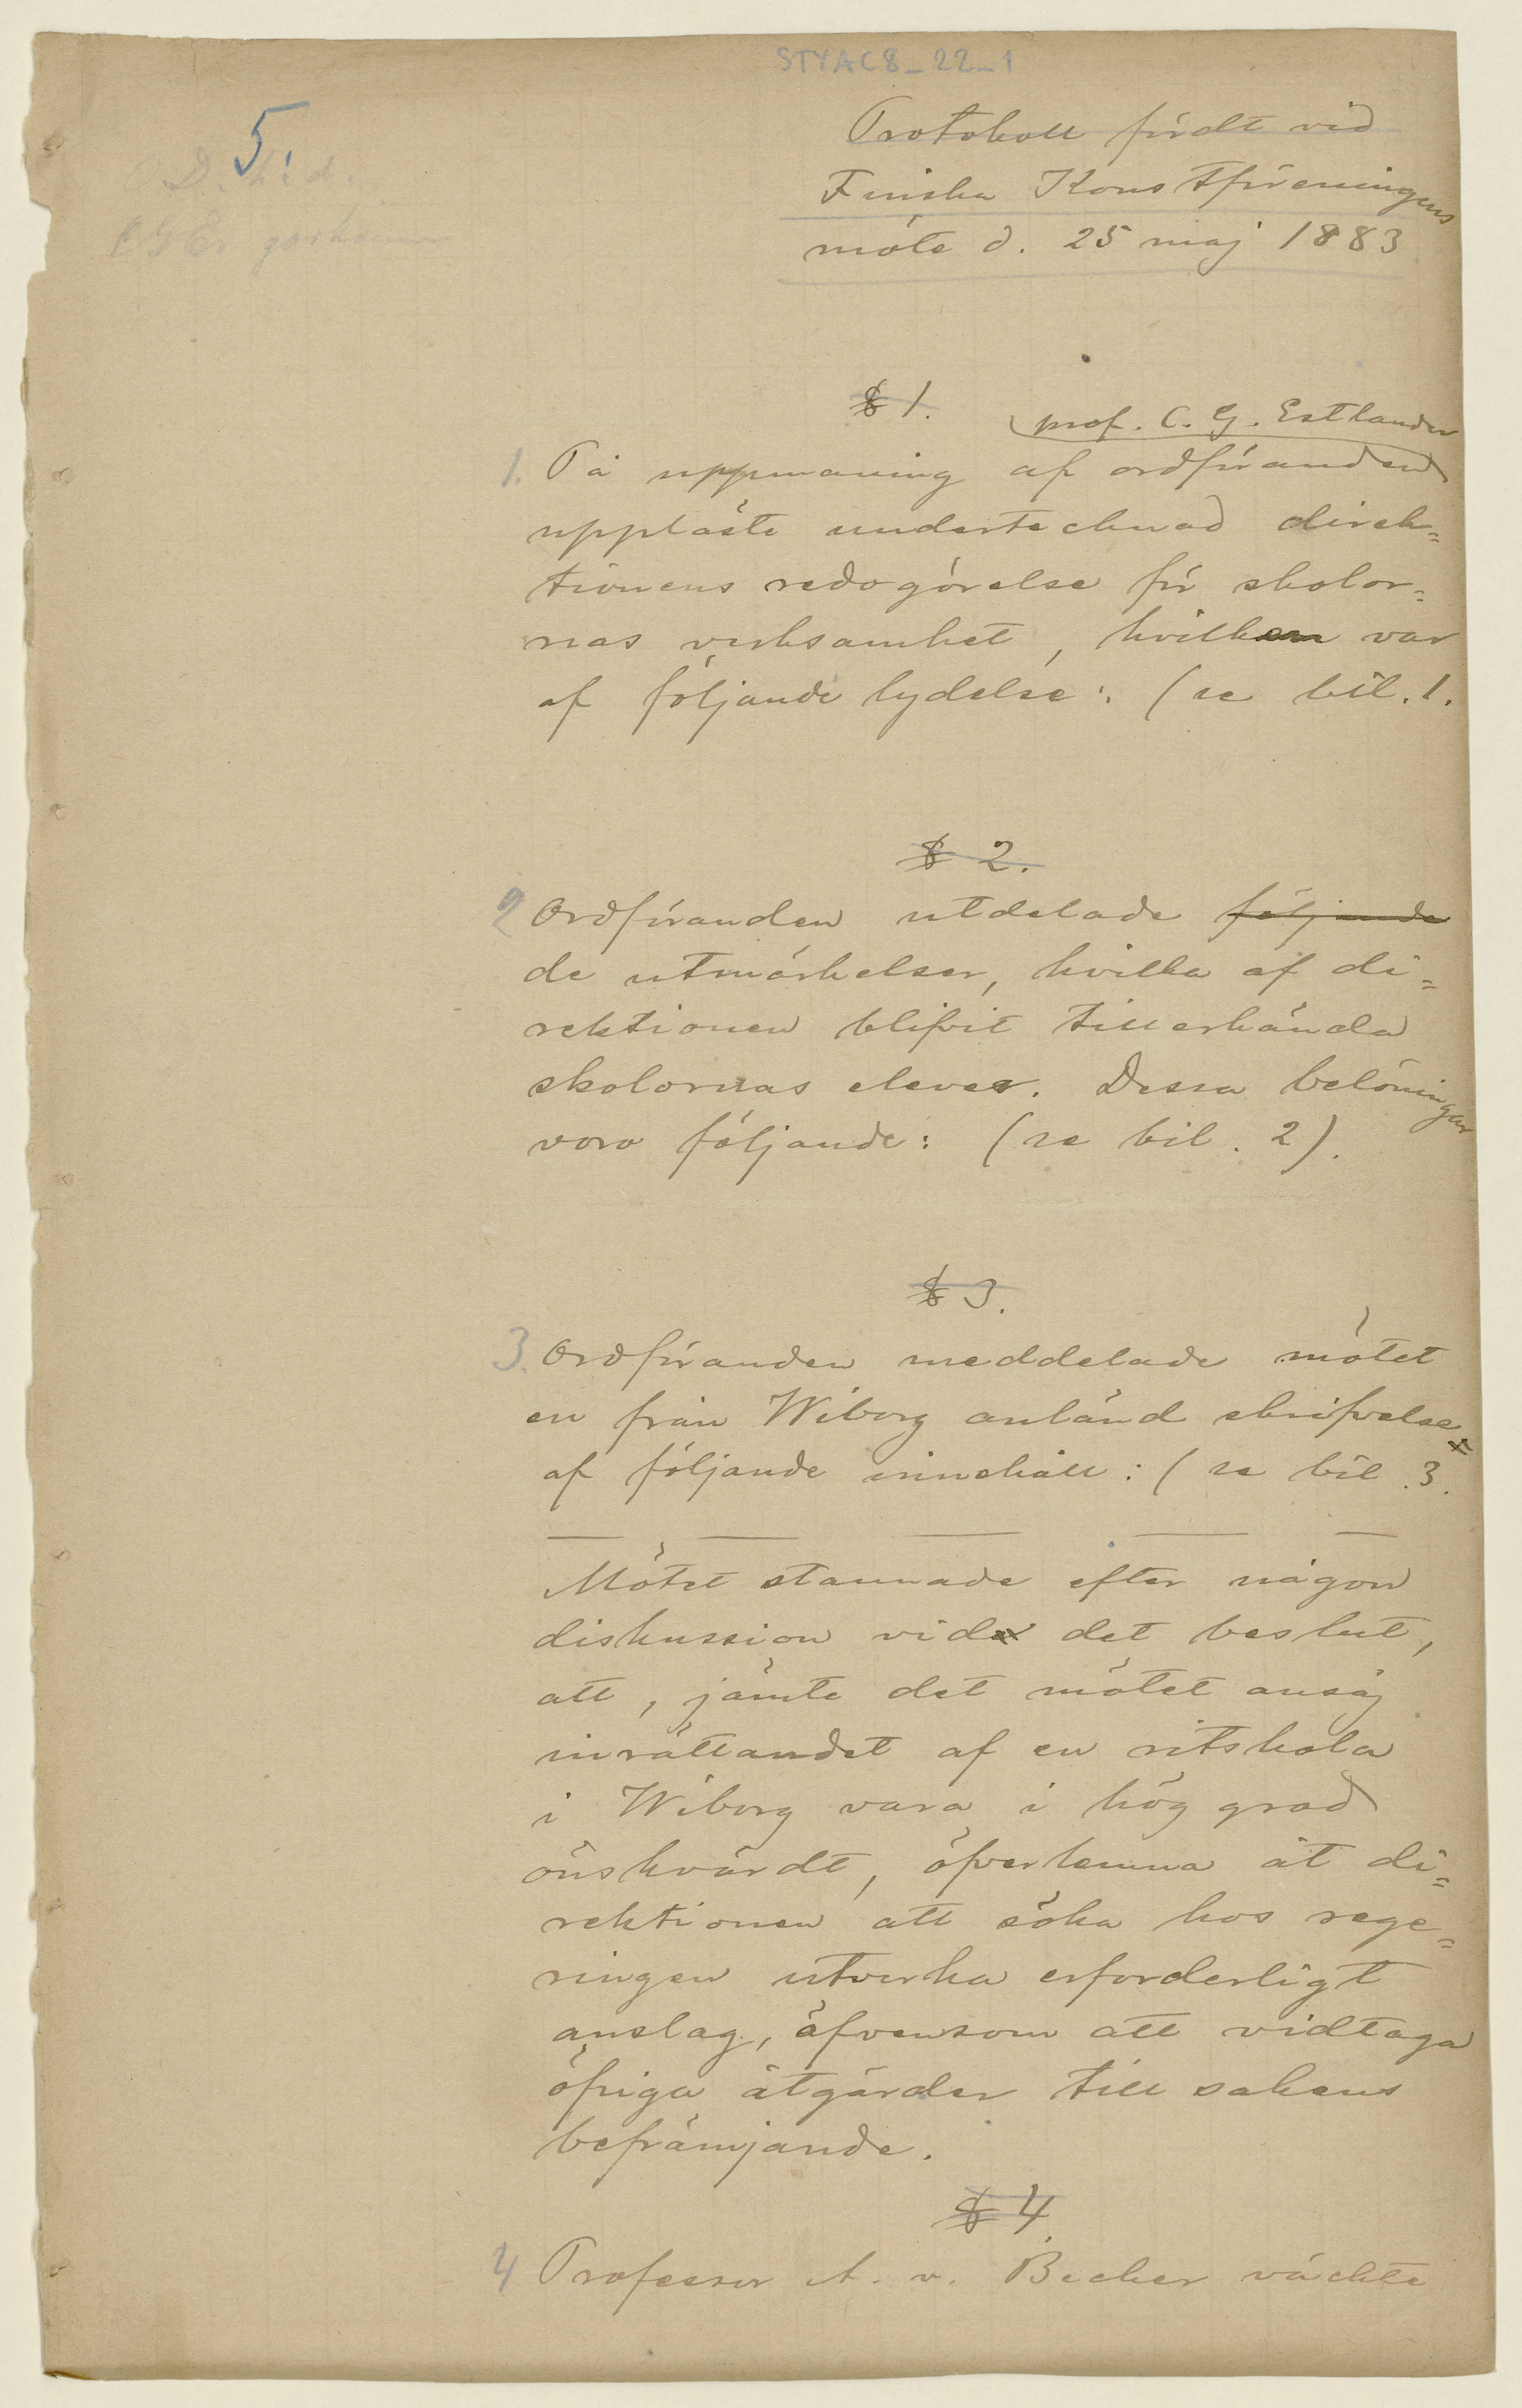 STYAC8_22_1
5.
Protokoll fördt vid
Finska Konstföreningens
möte d. 25 maj 1883
§ 1.
prof. C. G. Estlander
1. På uppmaning af ordföranden
uppläste undertecknad direk=
tionens redogörelse för skolor=
nas verksamhet, hvilken var
af följande lydelse: (se bil. 1.
§ 2.
2 Ordföranden utdelade följande
de utmärkelser, hvilka af di=
rektionen blifvit tillerkända
skolornas elever. Dessa belöningar
voro följande: (se bil. 2).
§ 3.
3. Ordföranden meddelade mötet
en från Wiborg anländ skrifvelse
af följande innehåll: (se bil. 3.
Mötet stannade efter någon
diskussion vid det beslut,
att, jämte det mötet ansåg
inrättandet af en ritskola
i Wiborg vara i hög grad
önskvärdt, öfverlemna åt di=
rektionen att söka hos rege=
ringen utverka erforderligt
anslag, äfvensom att vidtaga
öfriga åtgärder till sakens
befrämjande.
§ 4.
4 Professor A. v. Becker väckte